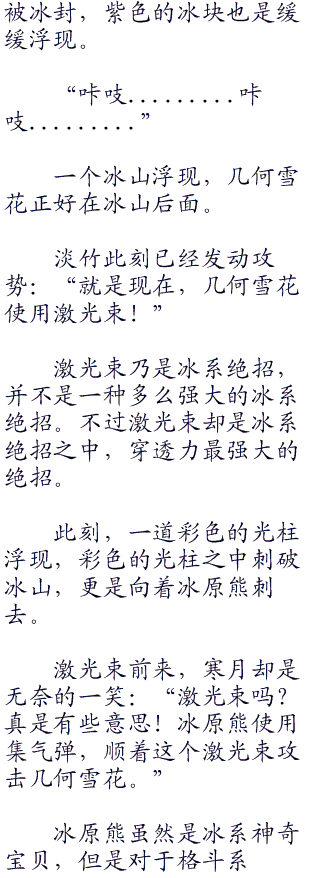 被冰封，紫色的冰块也是缓
缓浮现。
“咔吱.........咔
吱.........”
一个冰山浮现，几何雪
花正好在冰山后面。
淡竹此刻已经发动攻
势：“就是现在，几何雪花
使用激光束！”
激光束乃是冰系绝招，
并不是一种多么强大的冰系
绝招。不过激光束却是冰系
绝招之中，穿透力最强大的
绝招。
此刻，一道彩色的光柱
浮现，彩色的光柱之中刺破
冰山，更是向着冰原熊刺
去。
激光束前来，寒月却是
无奈的一笑：“激光束吗？
真是有些意思！冰原熊使用
集气弹，顺着这个激光束攻
击几何雪花。”
冰原熊虽然是冰系神奇
宝贝，但是对于格斗系